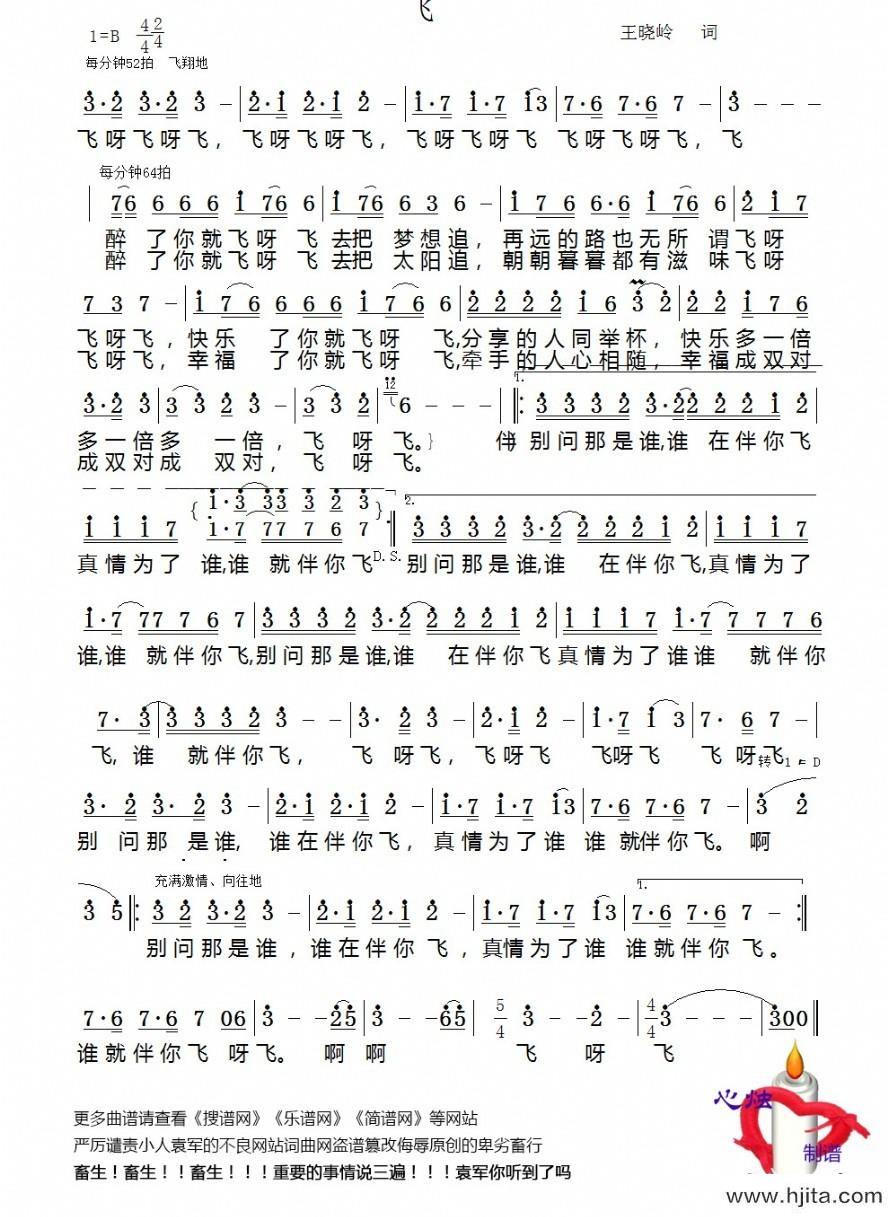 飞
1=B 4/4 2/4
王晓岭 词
每分钟52拍 飞翔地
3·2 3·2 3 - | 2·1 2·1 2 - | 1·7 1·7 13 | 7·6 7·6 7 - | 3 - - -
飞呀飞呀飞，飞呀飞呀飞，飞呀飞呀飞 飞呀飞呀飞，飞
每分钟64拍
| 76 666 1 76 6 | 1 76 6 3 6 - | 1 7 6 6·6 1 76 6 | 2 1 7
醉 了你就飞呀 飞 去把 梦想追，再远的路也无所 谓飞呀
醉 了你就飞呀 飞 去把 太阳追，朝朝暮暮都有滋 味飞呀
7 3 7 - | 1 7 6 6 6 6 1 7 6 6 | 2 2 2 2 1 6 3 2 | 2 2 1 7 6
飞呀飞，快乐 了你就飞呀 飞,分享的人同举杯，快乐多一倍
飞呀飞，幸福 了你就飞呀 飞,牵手的人心相随，幸福成双对
3·2 3 | 3 3 2 3 - | 3 3 2 | 12 6 - - - |: 1. 3 3 3 2 3·2 2 2 2 1 2 |
多一倍多 一倍，飞 呀飞。} 伴 别问那是谁,谁 在伴你飞
成双对成 双对，飞 呀飞。
{ 1·3 33 3 2 3 } 2.
1 1 1 7 1·7 77 7 6 7 :| 3 3 3 2 3·2 2 2 2 1 2 | 1 1 1 7
真情为了 谁,谁 就伴你飞 D.S. 别问那是谁,谁 在伴你飞,真情为了
1·7 77 7 6 7 | 3 3 3 2 3·2 2 2 2 1 2 | 1 1 1 7 1·7 7 7 7 6
谁,谁 就伴你飞,别问那是谁,谁 在伴你飞真情为了谁谁 就伴你
7· 3 | 3 3 3 2 3 - - | 3· 2 3 - | 2·1 2 - | 1·7 1 3 | 7· 6 7 - |
飞, 谁 就伴你飞， 飞 呀飞，飞呀飞 飞呀飞 飞 呀飞
转1=D
3· 2 3·2 3 - | 2·1 2·1 2 - | 1·7 1·7 13 | 7·6 7·6 7 - | 3 2
别 问那 是谁, 谁在伴你飞，真情为了谁 谁 就伴你飞。啊
充满激情、向往地
3 5 |: 3 2 3·2 3 - | 2·1 2·1 2 - | 1·7 1·7 13 | 1. 7·6 7·6 7 - :|
别问那是谁，谁在伴你 飞，真情为了谁 谁就伴你 飞。
7·6 7·6 7 06 | 3 - - 25 | 3 - - 65 | 5/4 3 - -2 - | 4/4 3 - - - | 300 ||
谁就伴你飞 呀飞。 啊 啊 飞 呀 飞
更多曲谱请查看《搜谱网》《乐谱网》《简谱网》等网站
严厉谴责小人袁军的不良网站词曲网盗谱篡改侮辱原创的卑劣畜行
畜生！畜生！！畜生！！！重要的事情说三遍！！！袁军你听到了吗
心烛
制谱
www.hjita.com